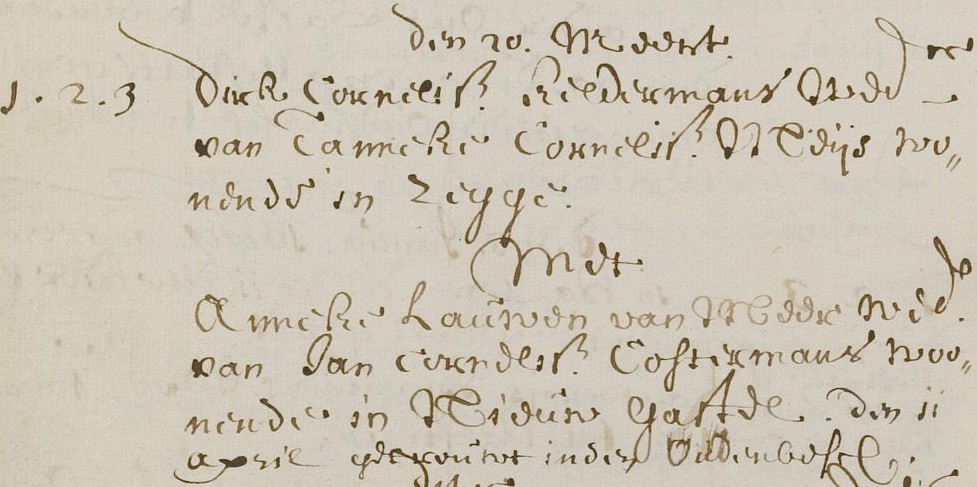 den 20. Meert.
1. 2. 3 Dirk Cornelis. Keldermans Wedr
van Tanneke Cornelis. Meijs wo„
nende in Zegge.
Met
Anneke Lauwen van Meer Wede.
van Jan Cornelis. Costermans woo„
nende in Nieuw Gastel. den 11
april getrouwt in den Oudenbosch.